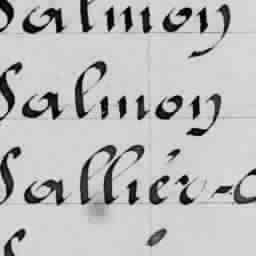 Salmon
Salmon
Sallier-